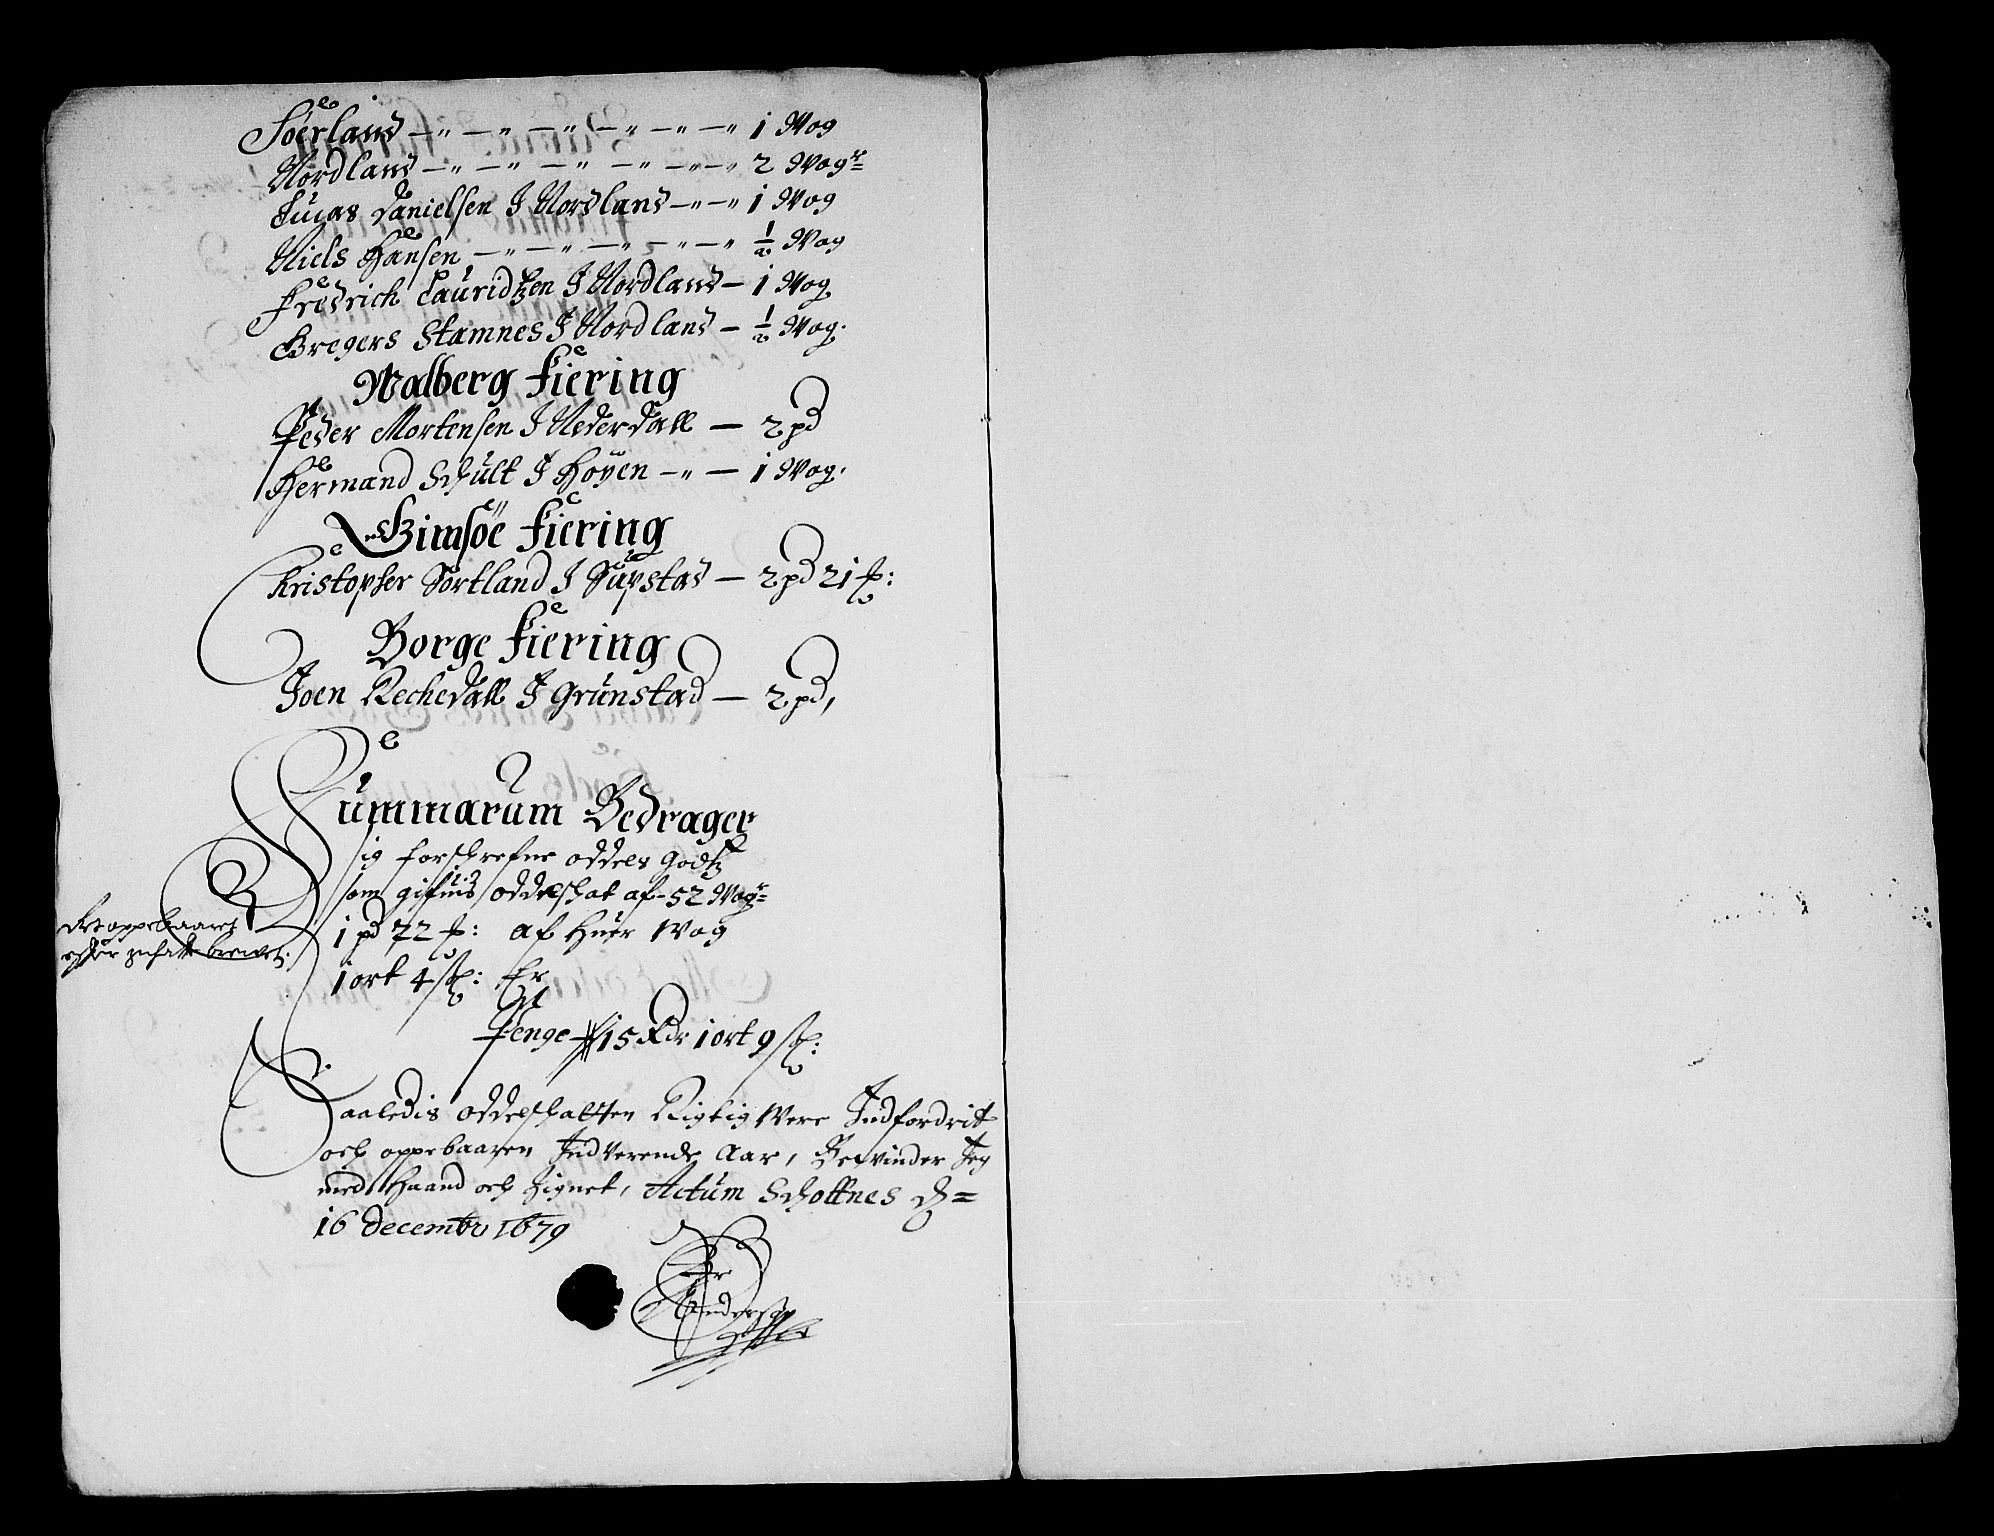 Söerland — " — " — " — " — " — " 1 Wog
Nordland — " — " — " — " — " — " 2 Wogr=
Lucas Danielsen I Nordland — " — " 1 Wog
Niels Hansen — " — " — " — " — " ½ Wog
Fredrich Lauridtzen I Nordland — 1 Wog
Gregers Stamnes I Nordland — ½ Wog.
Walberg Fiering
Peder Mortensen I Nederdall — 2 pd
Hermand Schult I Høyen — " — 1 Wog.
Gimsöe Fiering
Kristopher Sortland I Supstad — 2 pd 21 f:
Borge Fiering
Joen Rechedall I Grunstad — 2 pd,
Summarum Bedrager
sig forschrefne oddels Godtz
som gifuis oddelschat af - 52 Wogr=
1 pd 22 f: af Huer Wog
1 ort 4 sk: Er
Penge 15 Rdr 1 ort 9 sk:
oppebaaret
efter schatte brevet.
Saaledis oddelschatten Rigtig Were Indfordrit
och oppebaaren Indverende Aar, Bewinder Jeg
med Haand och Zignet, Actum Schottnes d=
16 decembr 1679
Andersen